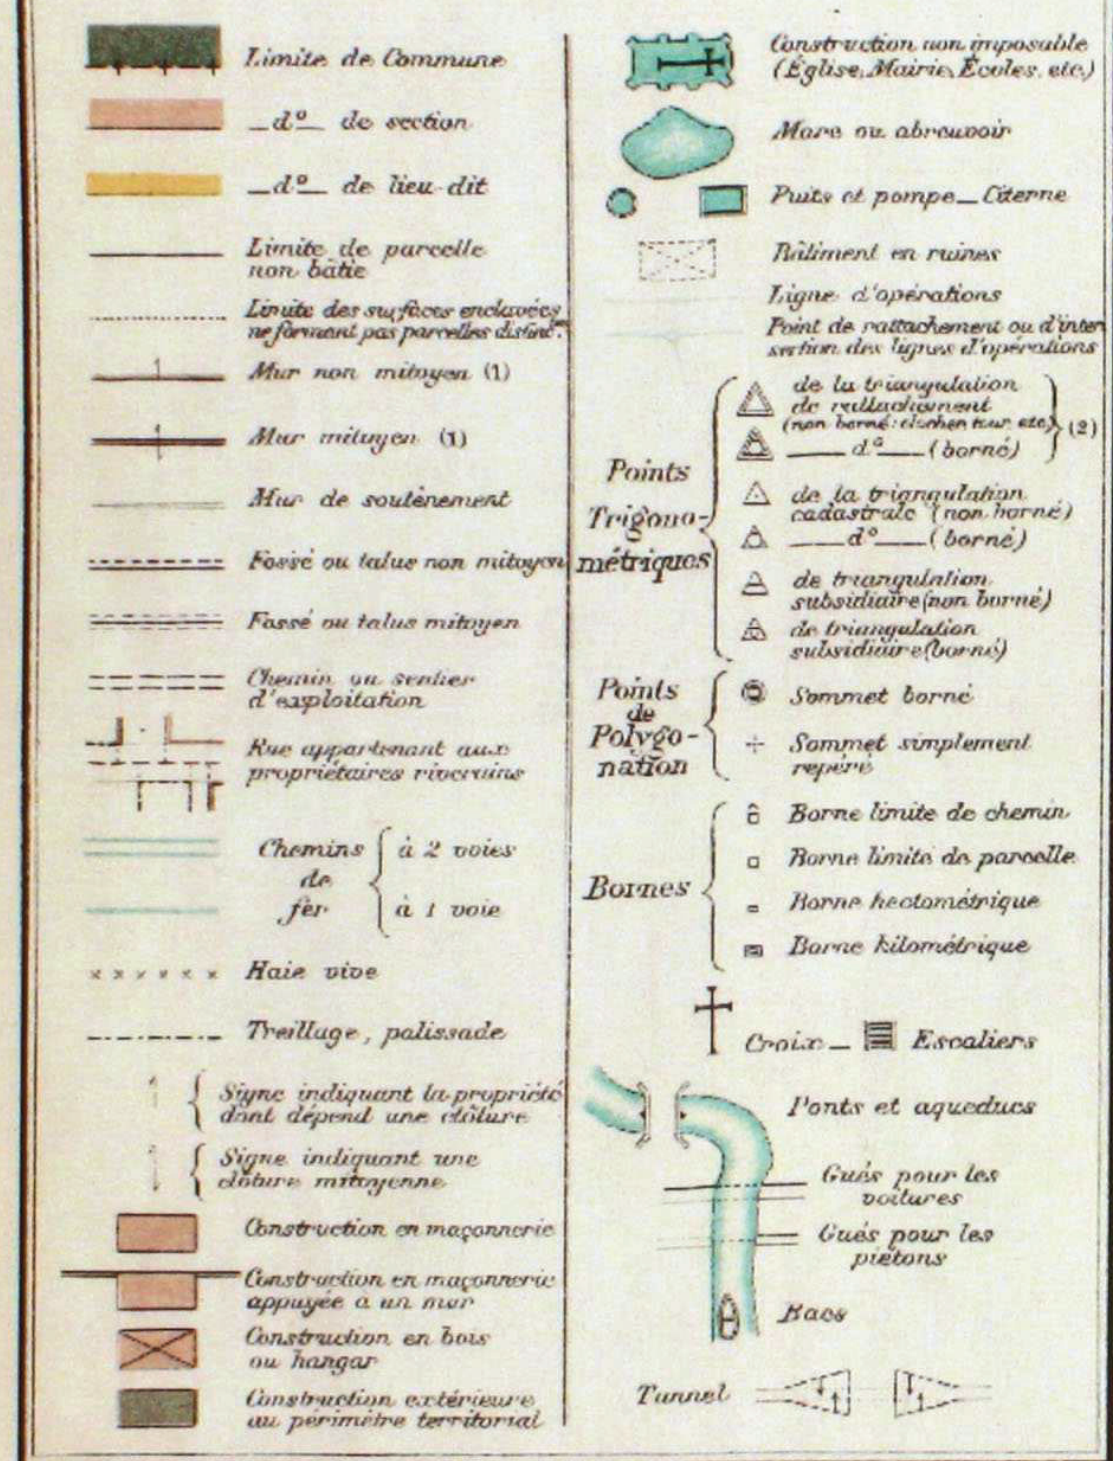 Limite de Commune
_dº_ de section
_dº_ de lieu-dit
Limite de parcelle
non bâtie
Limite des surfaces enclavées
ne formant pas parcelles distinctes
Mur non mitoyen (1)
Mur mitoyen (1)
Mur de soutènement
Fossé ou talus non mitoyen
Fossé ou talus mitoyen
Chemin ou sentier
d'exploitation
Rue appartenant aux
propriétaires riverains
Chemins
de
fer
à 2 voies
à 1 voie
Haie vive
Treillage, palissade
Signe indiquant la propriété
dont dépend une clôture
Signe indiquant une
clôture mitoyenne
Construction en maçonnerie
Construction en maçonnerie
appuyée à un mur
Construction en bois
ou hangar
Construction extérieure
au périmètre territorial
Construction non imposable
(Église, Mairie, Écoles, etc.)
Mare ou abreuvoir
Puits et pompe _ Citerne
Bâtiment en ruines
Ligne d'opérations
Point de rattachement ou d'inter
section des lignes d'opérations
Points
Trigono-
métriques
de la triangulation
de rattachement
(non borné: clocher tour etc.)
(2)
___dº___ (borné)
de la triangulation
cadastrale (non borné)
___dº___ (borné)
de triangulation
subsidiaire (non borné)
de triangulation
subsidiaire (borné)
Points
de
Polygo-
nation
Sommet borné
Sommet simplement
repéré
Bornes
Borne limite de chemin
Borne limite de parcelle
Borne hectométrique
Borne kilométrique
Croix _ Escaliers
Ponts et aqueducs
Gués pour les
voitures
Gués pour les
piétons
Bacs
Tunnel